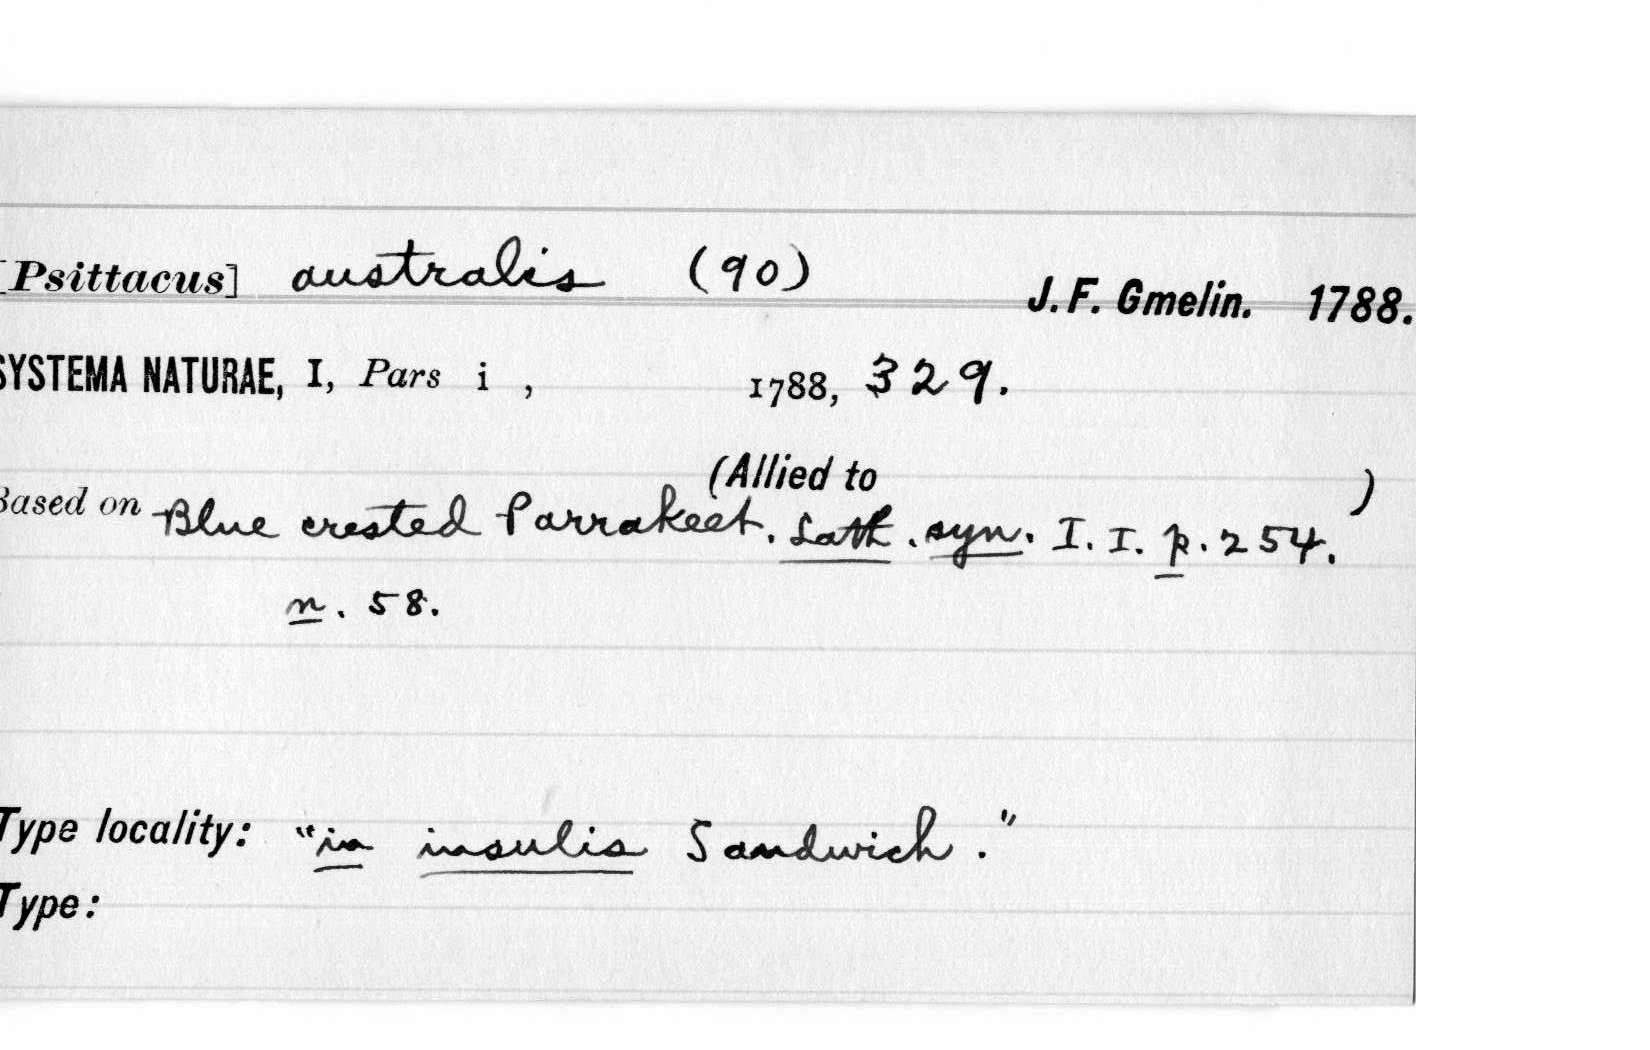 [Psittacus] australis (90) J. F. Gmelin. 1788.
SYSTEMA NATURAE, I, Pars i , 1788, 329.
(Allied to )
Based on Blue crested Parrakeet. Lath. syn. I. I. p. 254.
n. 58.
Type locality: "in insulis Sandwich."
Type: